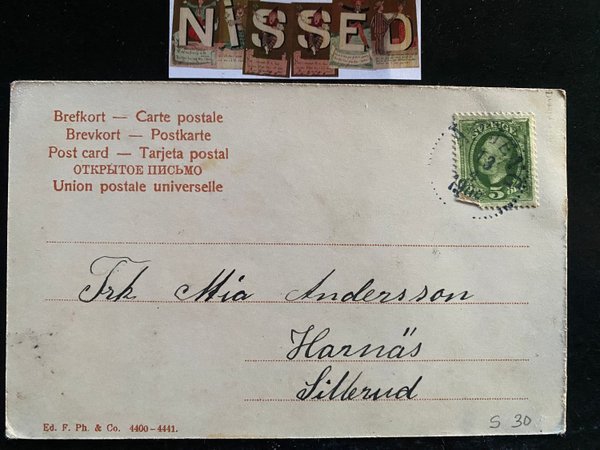 NISSED
Brefkort — Carte postale
Brevkort — Postkarte
Post card — Tarjeta postal
ОТКРЫТОЕ ПИСЬМО
Union postale universelle
SVERIGE
5
Frk Mia Andersson
Harnäs
Sillerud
Ed. F. Ph. & Co. 4400-4441.
S 30